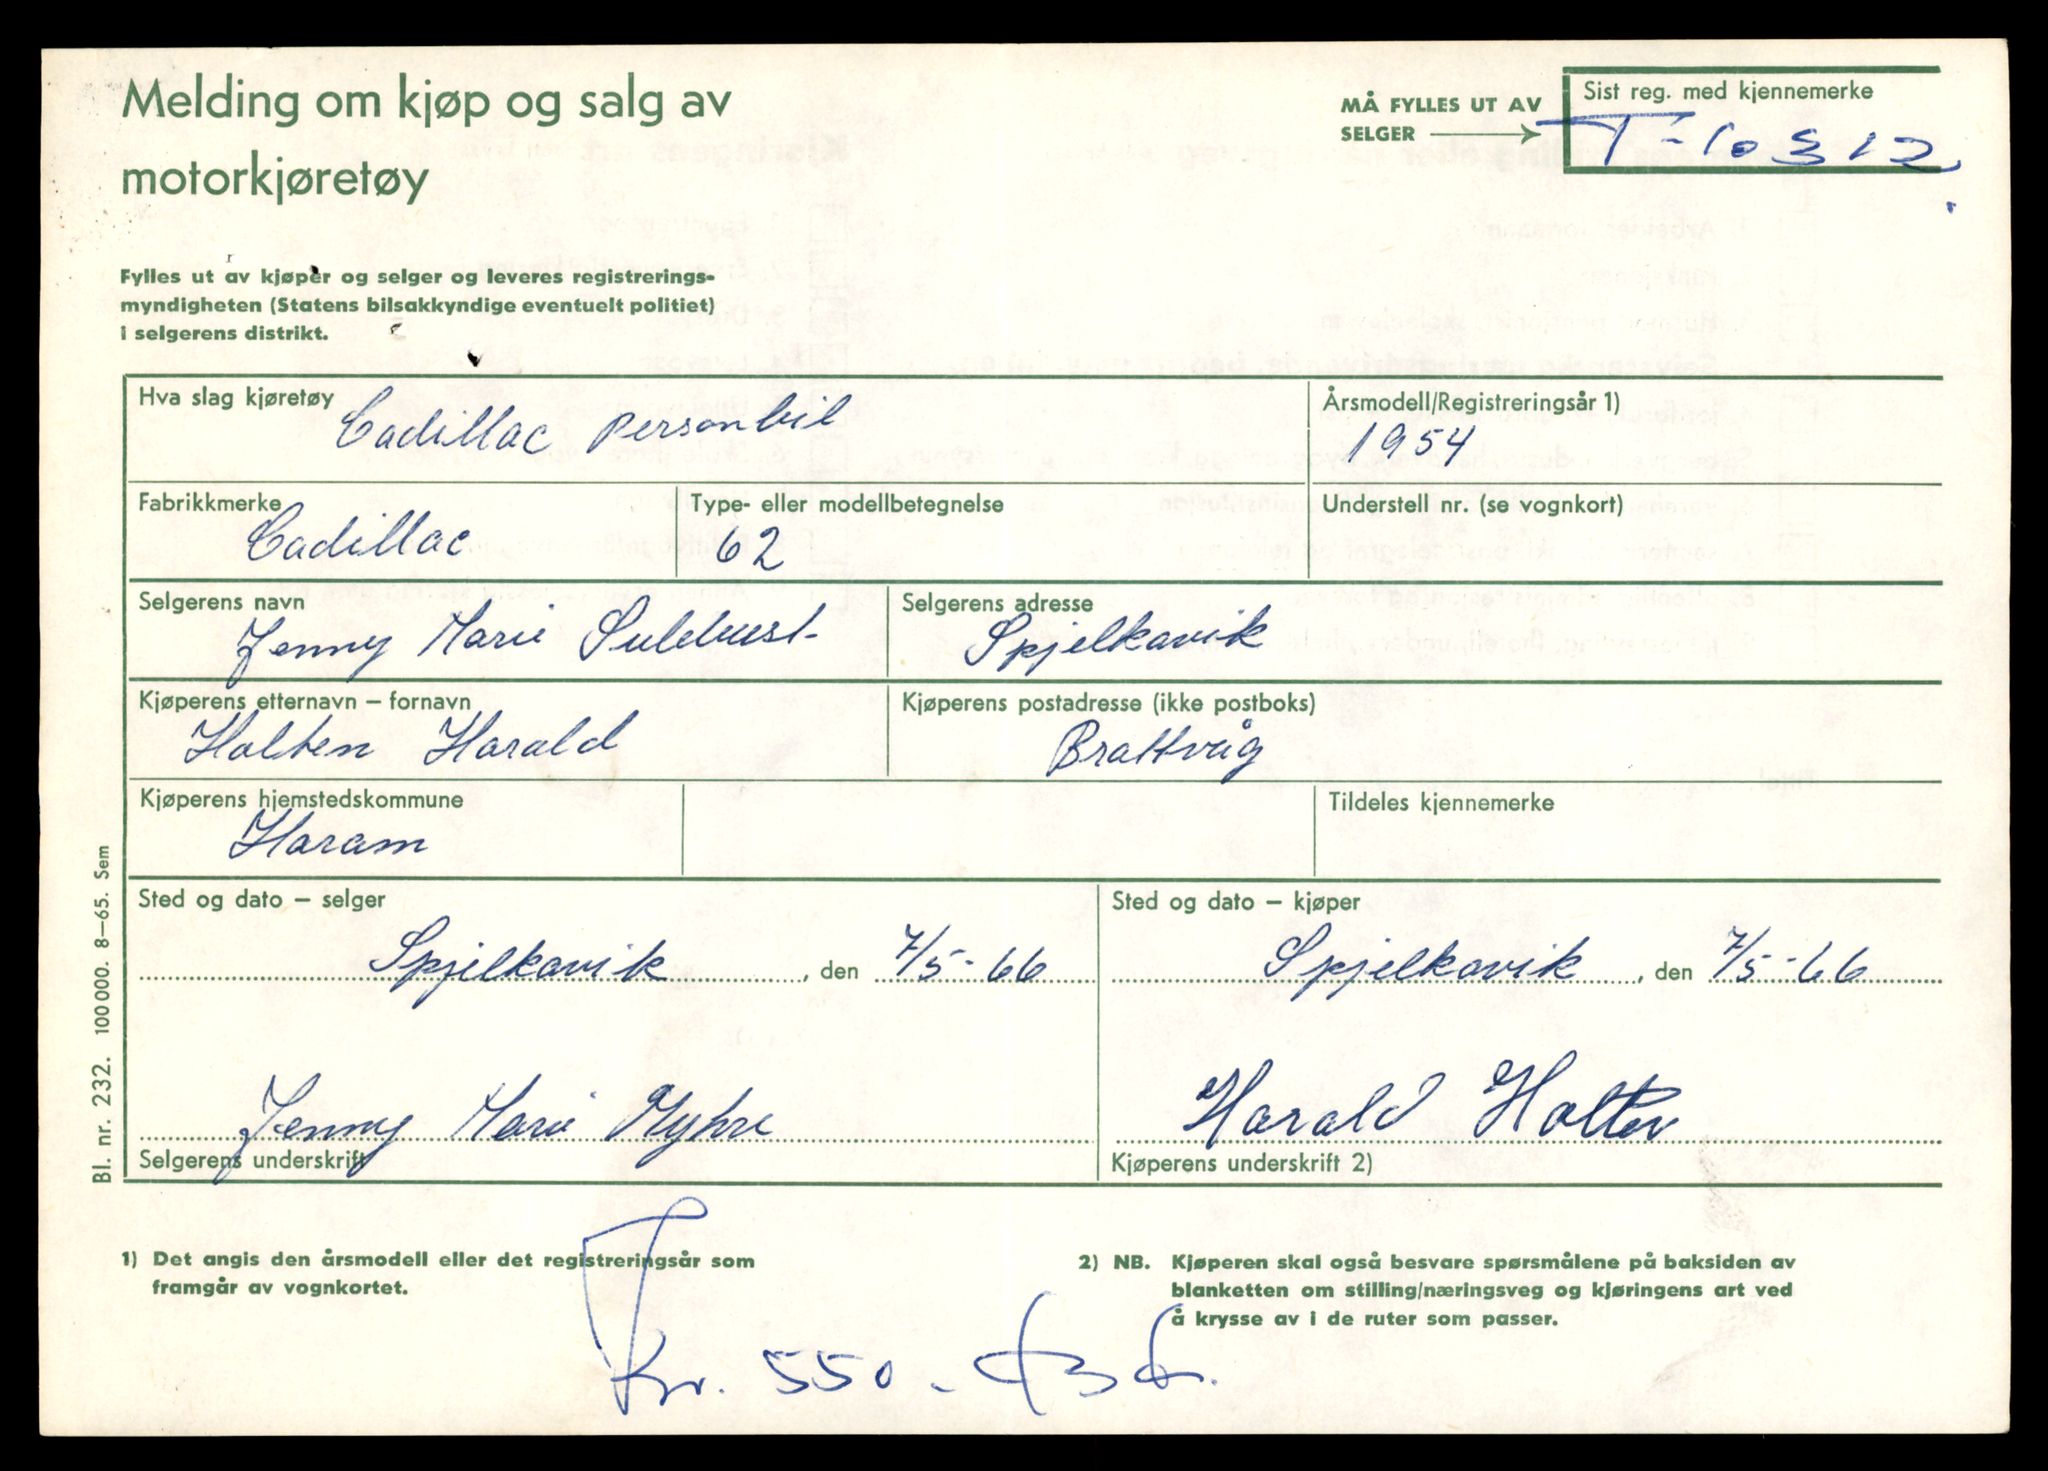 Melding om kjøp og salg av
motorkjøretøy
MÅ FYLLES UT AV
SELGER
Sist reg. med kjennemerke
T-10312.
Fylles ut av kjøper og selger og leveres registrerings-
myndigheten (Statens bilsakkyndige eventuelt politiet)
i selgerens distrikt.
Hva slag kjøretøy
Cadillac personbil
Årsmodell/Registreringsår 1)
1954
Fabrikkmerke
Cadillac
Type- eller modellbetegnelse
62
Understell nr. (se vognkort)
Selgerens navn
Jenny Marie Sulebust
Selgerens adresse
Spjelkavik
Kjøperens etternavn – fornavn
Holten Harald
Kjøperens postadresse (ikke postboks)
Brattvåg
Kjøperens hjemstedskommune
Haram
Tildeles kjennemerke
Sted og dato – selger
Spjelkavik, den 7/5-66
Sted og dato – kjøper
Spjelkavik, den 7/5-66
Jenny Marie Myhre
Selgerens underskrift
Harald Holten
Kjøperens underskrift 2)
Bl. nr. 232. 100 000. 8–65. Sem
1) Det angis den årsmodell eller det registreringsår som
framgår av vognkortet.
2) NB. Kjøperen skal også besvare spørsmålene på baksiden av
blanketten om stilling/næringsveg og kjøringens art ved
å krysse av i de ruter som passer.
Kr. 550.